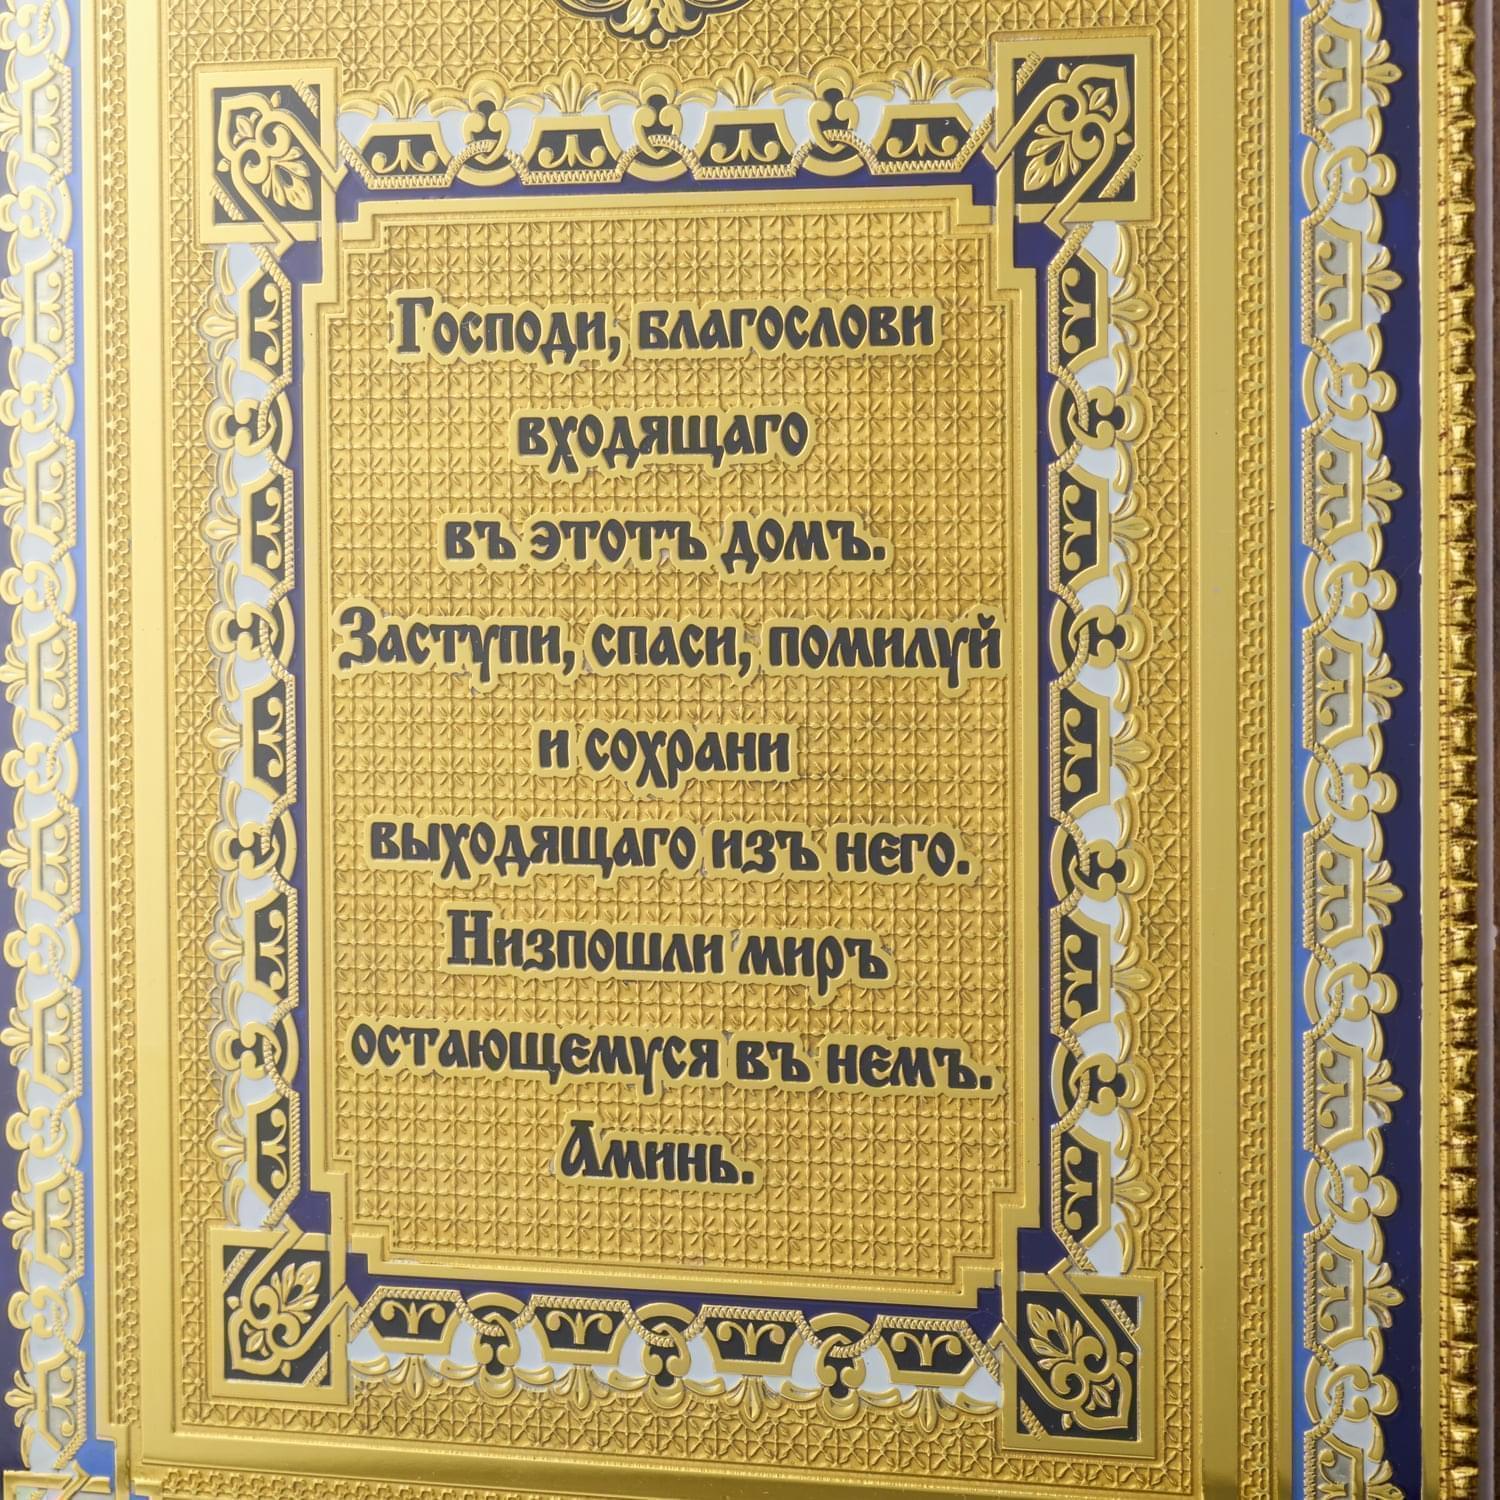 Господи, благослови
входящаго
въ этотъ домъ.
Заступи, спаси, помилуй
и сохрани
выходящаго изъ него.
Низпошли миръ
остающемуся въ немъ.
Аминь.